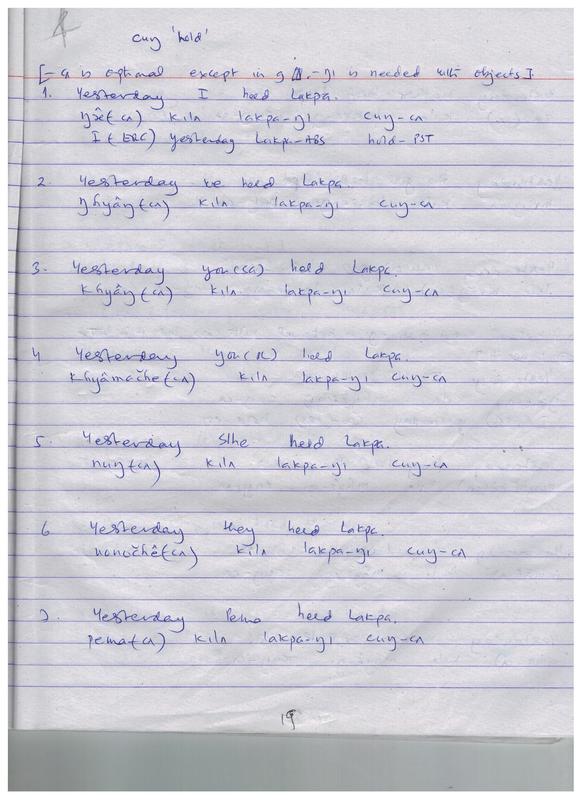 cuŋ 'hold'
[-cʌ is optional except in 9. -ŋi is needed with objects].
1. Yesterday I held Lakpa.
ŋâ(cʌ) kilʌ lakpa-ŋi cuŋ-cʌ
I(ERG) yesterday Lakpa-ABS hold-PST
2. Yesterday we held Lakpa.
ŋhyâŋ(cʌ) kilʌ lakpa-ŋi cuŋ-cʌ
3. Yesterday you(SG) held Lakpa.
khyâŋ(cʌ) kilʌ lakpa-ŋi cuŋ-cʌ
4 Yesterday you(PL) held Lakpa.
khyâmačhe(cʌ) kilʌ lakpa-ŋi cuŋ-cʌ
5. Yesterday S/he held Lakpa.
nuŋ(cʌ) kilʌ lakpa-ŋi cuŋ-cʌ
6 Yesterday they held Lakpa.
nonočhê(cʌ) kilʌ lakpa-ŋi cuŋ-cʌ
7. Yesterday Pema held Lakpa.
pema(cʌ) kilʌ lakpa-ŋi cuŋ-cʌ
19